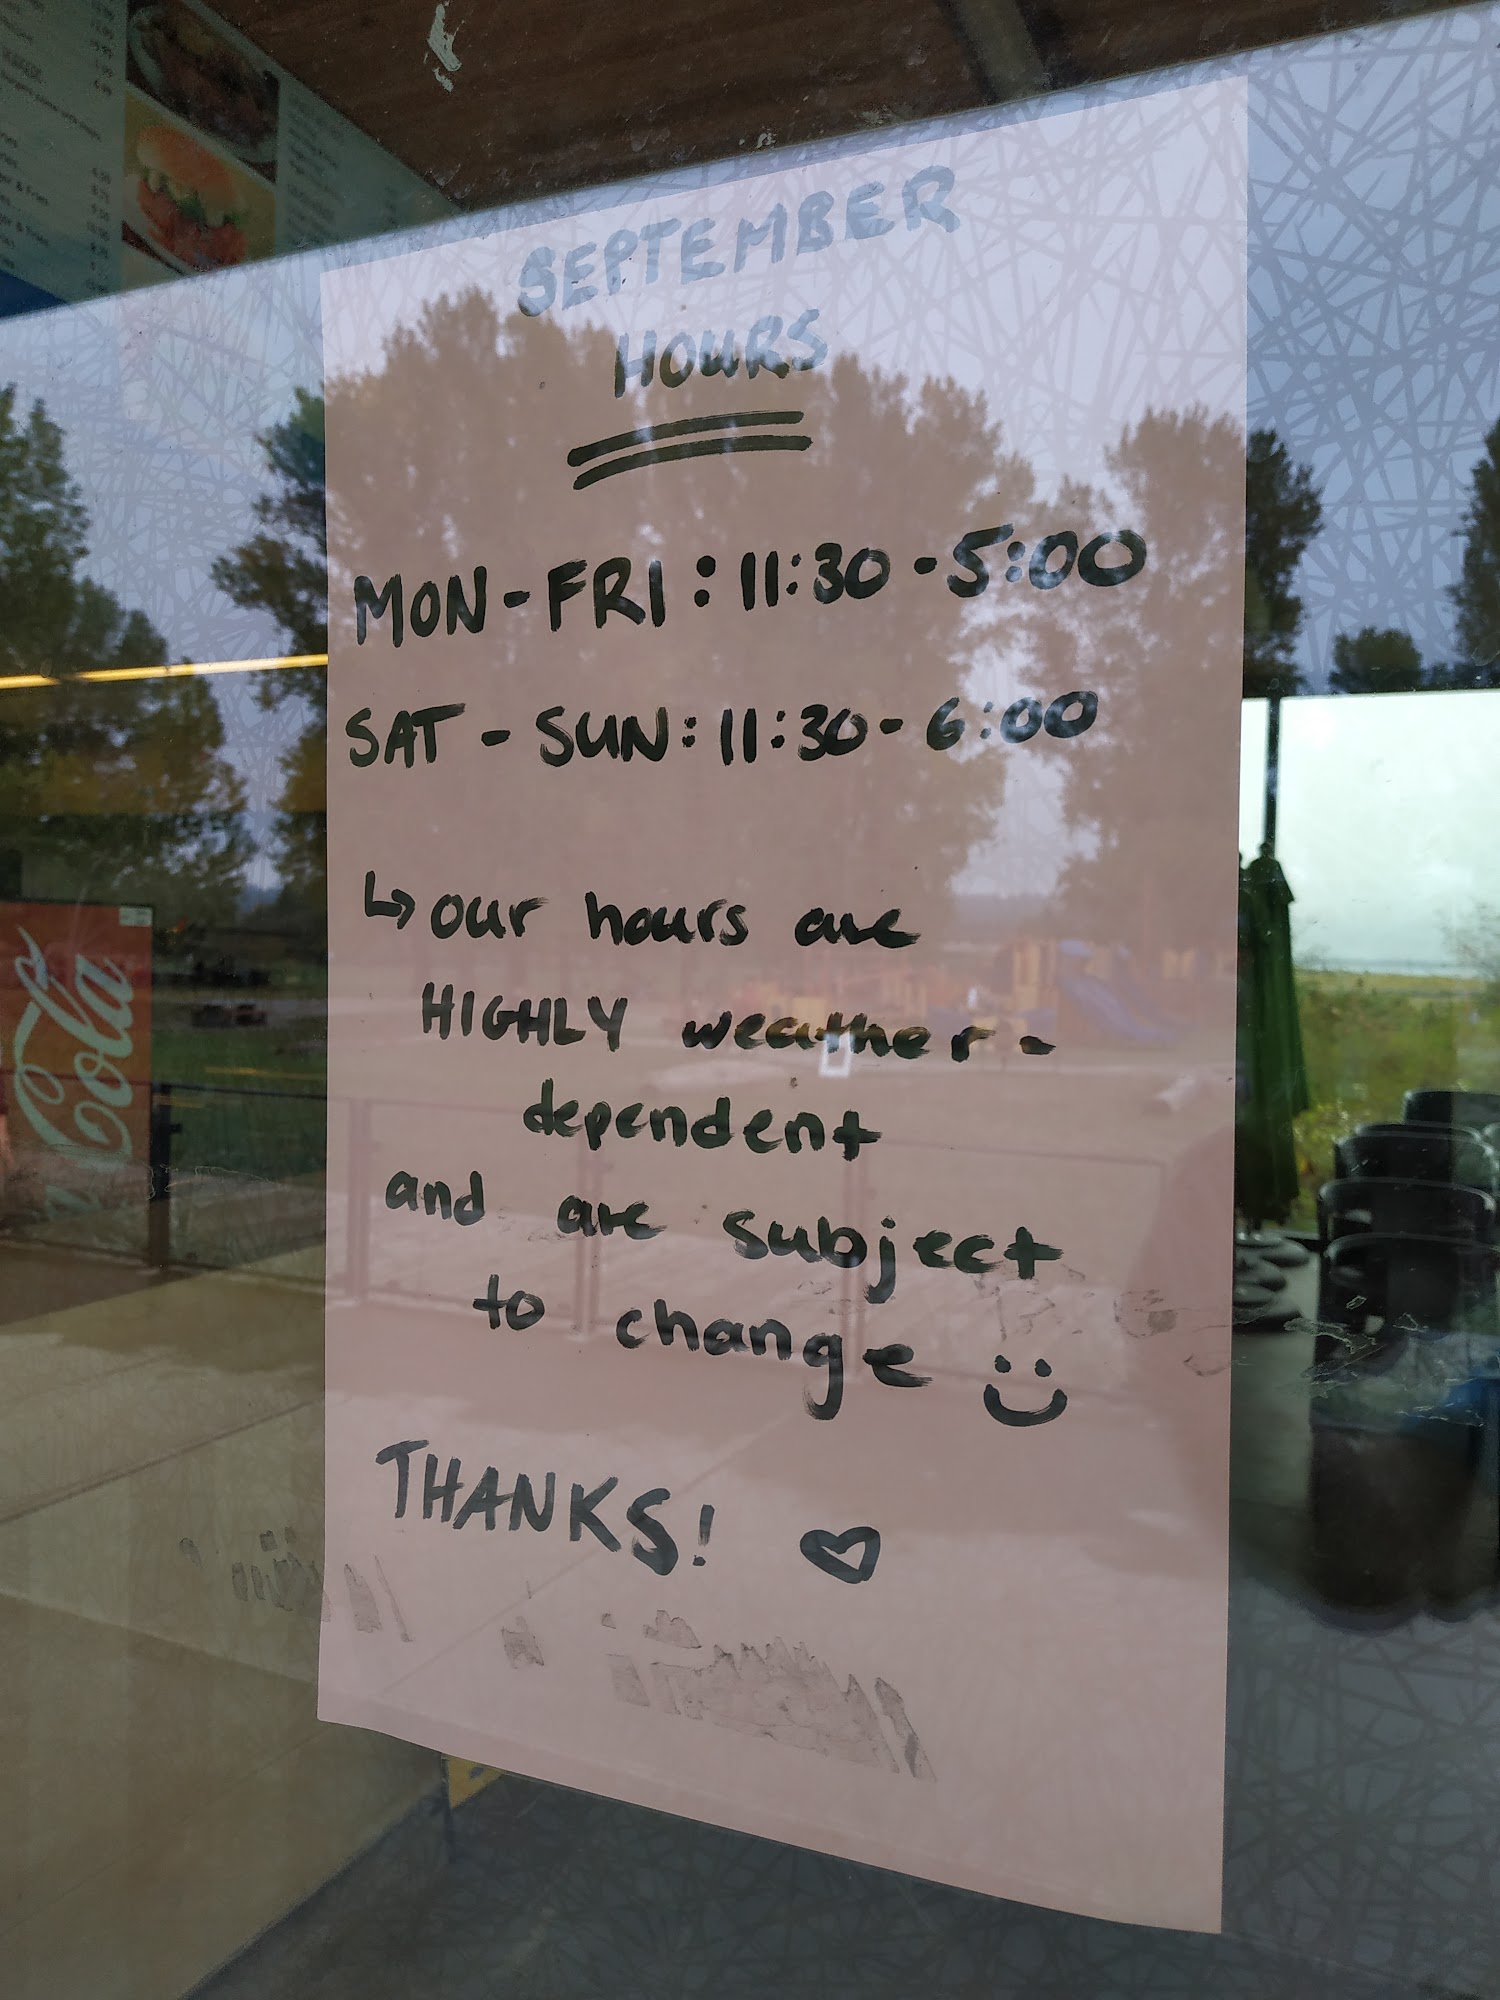 SEPTEMBER
HOURS
MON-FRI: 11:30-5:00
SAT - SUN: 11:30-6:00
↳ our hours are
HIGHLY weather-
dependent
and are subject
to change
THANKS! ♡
Cola